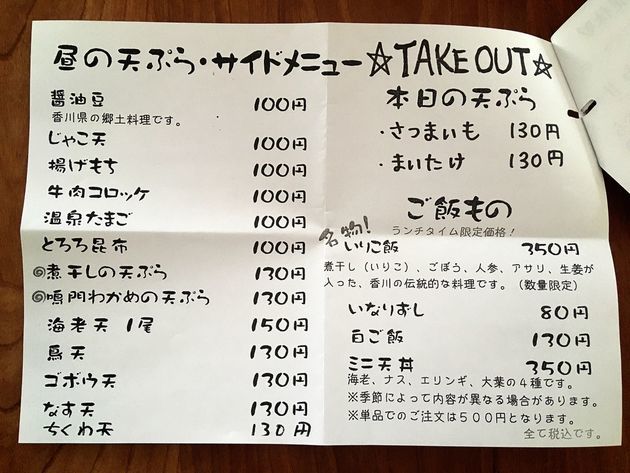 昼の天ぷら・サイドメニュー ☆TAKE OUT☆
醤油豆 100円
香川県の郷土料理です。
じゃこ天 100円
揚げもち 100円
牛肉コロッケ 100円
温泉たまご 100円
とろろ昆布 100円
◎煮干しの天ぷら 130円
◎鳴門わかめの天ぷら 130円
海老天 1尾 150円
鳥天 130円
ゴボウ天 130円
なす天 130円
ちくわ天 130円
本日の天ぷら
・さつまいも 130円
・まいたけ 130円
ご飯もの
ランチタイム限定価格！
名物！
いりこ飯 350円
煮干し（いりこ）、ごぼう、人参、アサリ、生姜が
入った、香川の伝統的な料理です。（数量限定）
いなりずし 80円
白ご飯 130円
ミニ天丼 350円
海老、ナス、エリンギ、大葉の４種です。
※季節によって内容が異なる場合があります。
※単品でのご注文は５００円となります。
全て税込です。